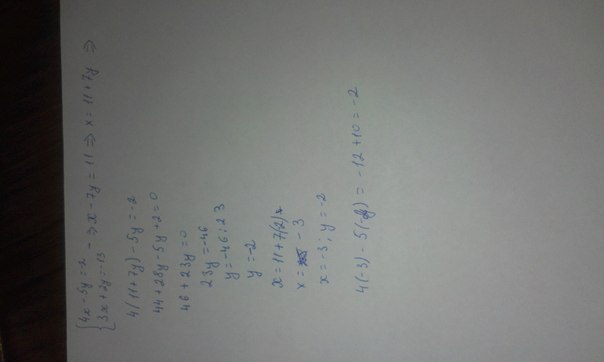 {4x-5y=-2
{3x+2y=-13 - Эx-7y=11 => x=11+7y =>
4(11+7y)-5y=-2
44+28y-5y+2=0
46+23y=0
23y=-46
y=-46:23
y=-2
x=11+7(2)
x= -3
x=-3; y=-2
4(-3)-5(-2)=-12+10=-2